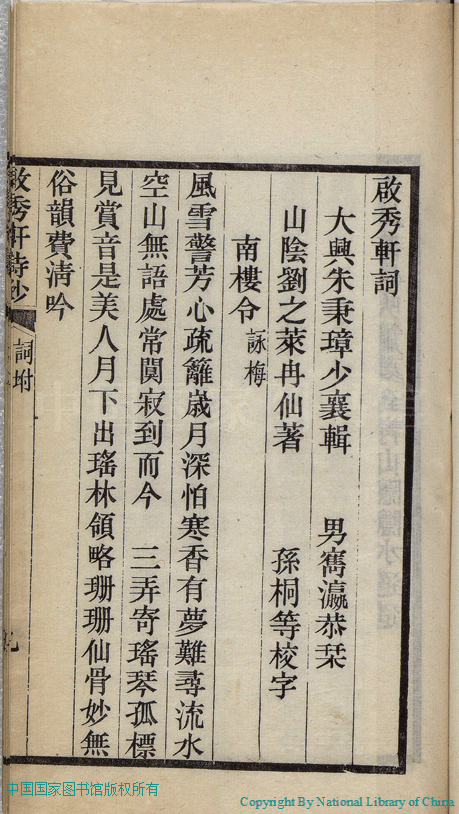 啟秀軒詞
大興朱秉璋少襄輯　男寯瀛恭栞
山陰劉之萊冉仙著　孫桐等校字
南樓令 詠梅
風雪警芳心疏籬歲月深怕寒香有夢難尋流水
空山無語處常闃寂到而今　三弄寄瑤琴孤標
見賞音是美人月下出瑤林領略珊珊仙骨妙無
俗韻費淸吟
啟秀軒詩鈔
詞坿
中国国家图书馆版权所有
Copyright By National Library of China